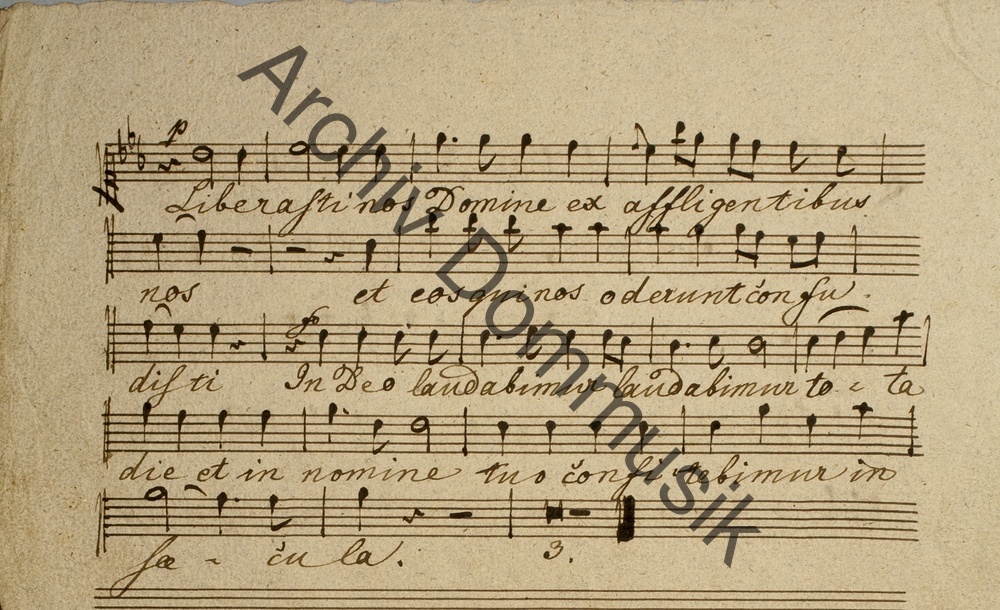 p
Liberasti nos Domine ex affligentibus
nos et eos qui nos oderunt confu-
disti In Deo laudabimur laudabimur to- ta
die et in nomine tuo confi-tebimur in
sæ- cu la.
3.
Archiv Dommusik